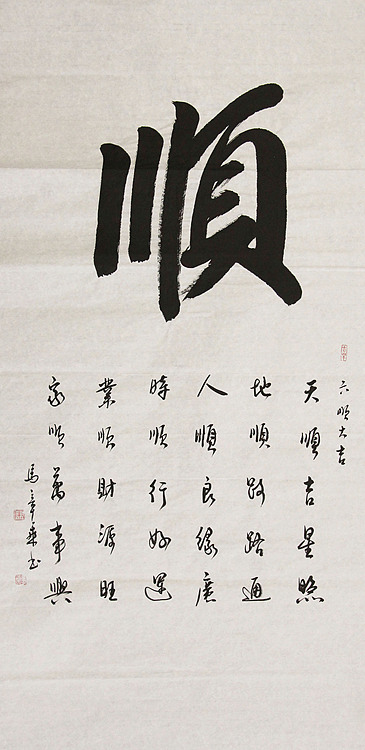 順
六順大吉
天順吉星照
地順路路通
人順良緣廣
時順行好運
業順財源旺
家順萬事興
馬章乘书